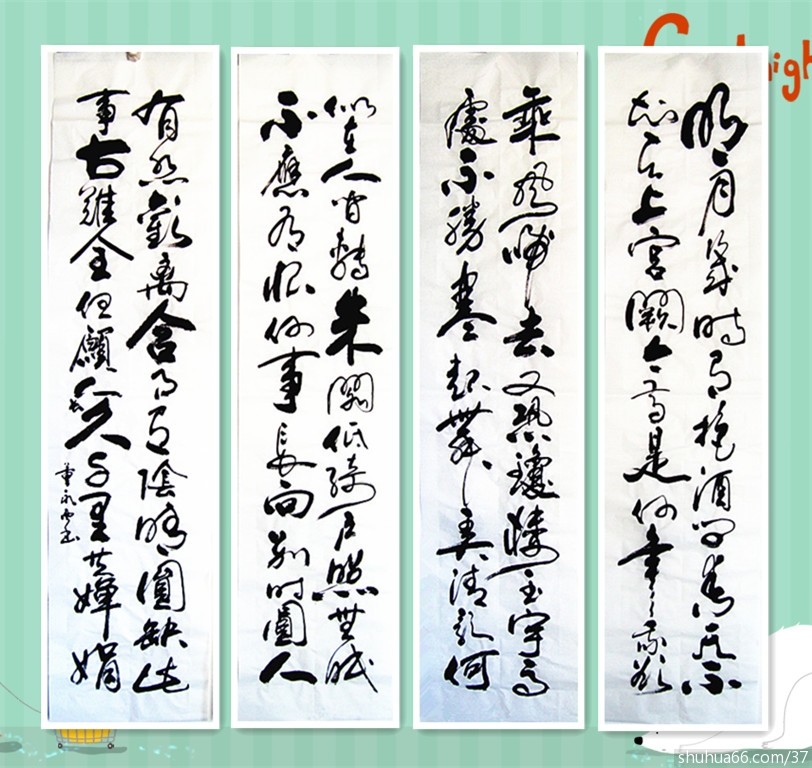 明月幾時有把酒問青天不
知天上宮闕今夕是何年我欲
乘風歸去又恐瓊樓玉宇高
處不勝寒起舞弄清影何
似在人間轉朱閣低綺戶照無眠
不應有恨何事長向別時圓人
有悲歡離合月有陰晴圓缺此
事古難全但願人長久千里共嬋娟
shuhua66.com/37